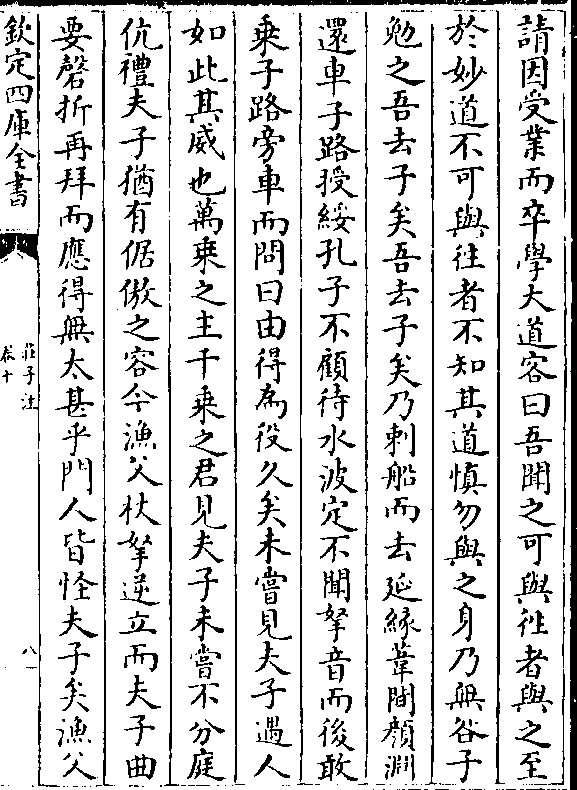 請因受業而卒學大道客曰吾聞之可與徃者與之至
於妙道不可與徃者不知其道慎勿與之身乃無咎子
勉之吾去子矣吾去子矣乃刺船而去延緣葦間顔淵
還車子路授綏孔子不顧待水波定不聞拏音而後敢
乘子路旁車而問曰由得為役久矣未嘗見夫子遇人
如此其威也萬乘之主千乘之君見夫子未嘗不分庭
伉禮夫子猶有倨傲之容今漁父杖拏逆立而夫子曲
要磬折再拜而應得無太甚乎門人皆怪夫子矣漁父
欽定四庫全書
莊子注
卷十
八